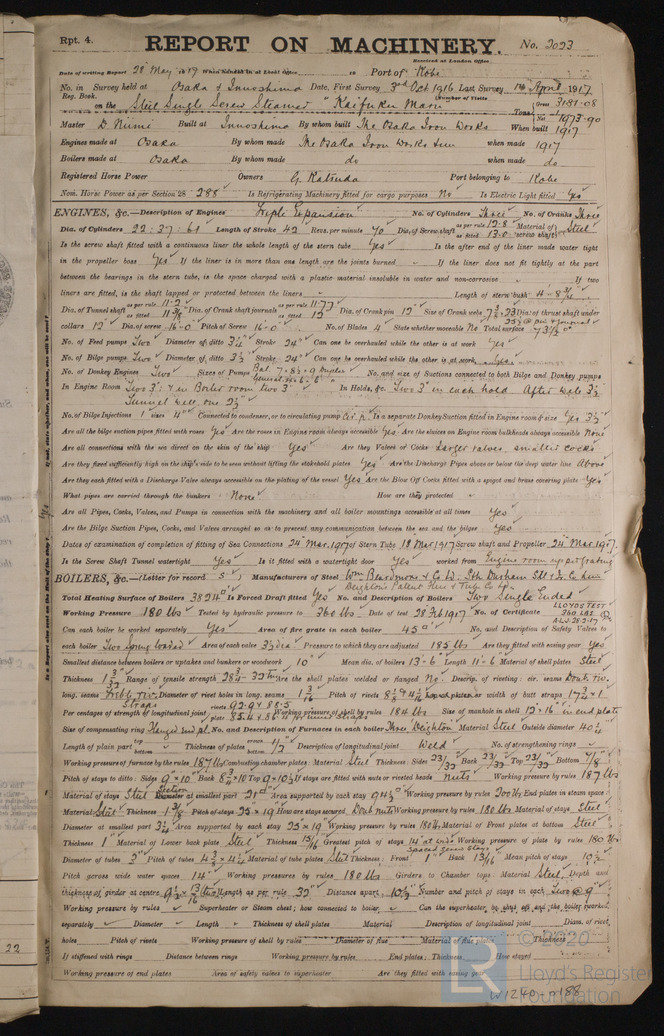 Rpt. 4.
REPORT ON MACHINERY.
No. 2023
Received at London Office
Date of writing Report 28 May 1917 When handed in at Local Office to Port of Kobe
No. in Survey held at Osaka & Innoshima Date, First Survey 3rd Oct 1916 Last Survey April 1917
Reg. Book. Number of Visits
on the Steel Single Screw Steamer "Kaifuku Maru" Tons Gross 3181.08
Net 1973.90
Master D. Niimi Built at Innoshima By whom built The Osaka Iron Works When built 1917
Engines made at Osaka By whom made The Osaka Iron Works when made 1917
Boilers made at Osaka By whom made do when made do
Registered Horse Power Owners G. Katsuda Port belonging to Kobe
Nom. Horse Power as per Section 28 288 Is Refrigerating Machinery fitted for cargo purposes No Is Electric Light fitted Yes
ENGINES, &c.—Description of Engines Triple Expansion No. of Cylinders Three No. of Cranks Three
Dia. of Cylinders 22: 37: 61 Length of Stroke 42 Revs. per minute 70 Dia. of Screw shaft as per rule 12.8 Material of Steel
as fitted 13.0 screw shaft
Is the screw shaft fitted with a continuous liner the whole length of the stern tube Yes Is the after end of the liner made water tight
in the propeller boss Yes If the liner is in more than one length are the joints burned If the liner does not fit tightly at the part
between the bearings in the stern tube, is the space charged with a plastic material insoluble in water and non-corrosive If two
liners are fitted, is the shaft lapped or protected between the liners Length of stern bush
Dia. of Tunnel shaft as per rule 11.2 as fitted 11 3/8 Dia. of Crank shaft journals as per rule 11.77 as fitted 12 Dia. of Crank pin 12" Size of Crank webs Dia. of thrust shaft under
collars 12" Dia. of screw 16-0 Pitch of Screw 16-0 No. of Blades 4 State whether moveable No Total surface 73 1/2
No. of Feed pumps Two Diameter of ditto 3 1/4 Stroke 24" Can one be overhauled while the other is at work Yes
No. of Bilge pumps Two Diameter of ditto 3 1/2 Stroke 24" Can one be overhauled while the other is at work Yes
No. of Donkey Engines Two Sizes of Pumps No. and size of Suctions connected to both Bilge and Donkey pumps
In Engine Room In Holds, &c. Two 3" in each hold After well 3 1/2
Tunnel well, one 2 1/2"
No. of Bilge Injections 1 sizes 4" Connected to condenser, or to circulating pump Is a separate Donkey Suction fitted in Engine room & size Yes 3 1/2
Are all the bilge suction pipes fitted with roses Yes Are the roses in Engine room always accessible Yes Are the sluices on Engine room bulkheads always accessible None
Are all connections with the sea direct on the skin of the ship Yes Are they Valves or Cocks Larger valves, smaller cocks
Are they fixed sufficiently high on the ship's side to be seen without lifting the stokehold plates Yes Are the Discharge Pipes above or below the deep water line Above
Are they each fitted with a Discharge Valve always accessible on the plating of the vessel Yes Are the Blow Off Cocks fitted with a spigot and brass covering plate Yes
What pipes are carried through the bunkers None How are they protected
Are all Pipes, Cocks, Valves, and Pumps in connection with the machinery and all boiler mountings accessible at all times Yes
Are the Bilge Suction Pipes, Cocks, and Valves arranged so as to prevent any communication between the sea and the bilges Yes
Dates of examination of completion of fitting of Sea Connections 24 Mar. 1917 of Stern Tube 18 Mar 1917 Screw shaft and Propeller 24 Mar. 1917
Is the Screw Shaft Tunnel watertight Yes Is it fitted with a watertight door Yes worked from Engine room upper grating
BOILERS, &c.—(Letter for record S) Manufacturers of Steel Wm Beardmore & Co Ld.
Total Heating Surface of Boilers 3824 Is Forced Draft fitted Yes No. and Description of Boilers Two Single Ended
Working Pressure 180 lbs Tested by hydraulic pressure to 360 lbs Date of test 28 Feb 1917 No. of Certificate LLOYDS TEST
360 LBS
Can each boiler be worked separately Yes Area of fire grate in each boiler 45 No. and Description of Safety Valves to
each boiler Two Spring loaded Area of each valve Pressure to which they are adjusted 185 lbs Are they fitted with easing gear Yes
Smallest distance between boilers or uptakes and bunkers or woodwork 10" Mean dia. of boilers 13-6" Length 11-6" Material of shell plates Steel
Thickness 1 3/32 Range of tensile strength Are the shell plates welded or flanged No Descrip. of riveting: cir. seams
long. seams Treble riv. Diameter of rivet holes in long. seams 1 3/16 Pitch of rivets Lap of plates or width of butt straps
Per centages of strength of longitudinal joint Working pressure of shell by rules 184 lbs Size of manhole in shell 12 x 16" in end plate
Size of compensating ring Flanged end pl. No. and Description of Furnaces in each boiler Three Deighton Material Steel Outside diameter 40 1/4
Length of plain part top bottom Thickness of plates Description of longitudinal joint Weld No. of strengthening rings
Working pressure of furnace by the rules 187 lbs Combustion chamber plates: Material Steel Thickness: Sides 23/32 Back 23/32 Top 23/32 Bottom 7/8
Pitch of stays to ditto: Sides 9 x 10" Back Top If stays are fitted with nuts or riveted heads Nuts Working pressure by rules 187 lbs
Material of stays Steel Section Diameter at smallest part Area supported by each stay Working pressure by rules End plates in steam space:
Material Steel Thickness 1 3/8 Pitch of stays 25 x 19" How are stays secured Dout nuts Working pressure by rules 180 lbs Material of stays Steel
Diameter at smallest part Area supported by each stay 25 x 19 Working pressure by rules 180 lbs Material of Front plates at bottom Steel
Thickness 1" Material of Lower back plate Steel Thickness 15/16 Greatest pitch of stays Working pressure of plate by rules 180 lbs
Diameter of tubes 3" Pitch of tubes Material of tube plates Steel Thickness: Front 1" Back 13/16 Mean pitch of stays
Pitch across wide water spaces 14" Working pressures by rules 180 lbs Girders to Chamber tops: Material Steel Depth and
thickness of girder at centre Length as per rule 32" Distance apart Number and pitch of stays in each Two @ 9"
Working pressure by rules Superheater or Steam chest; how connected to boiler Can the superheater be shut off and the boiler worked
separately Diameter Length Thickness of shell plates Material Description of longitudinal joint Diam. of rivet
holes Pitch of rivets Working pressure of shell by rules Diameter of flue Material of flue plates Thickness
If stiffened with rings Distance between rings Working pressure by rules End plates: Thickness How stayed
Working pressure of end plates Area of safety valves to superheater Are they fitted with easing gear
22
© 2020
LR
Lloyd's Register
Foundation
W1240-0188